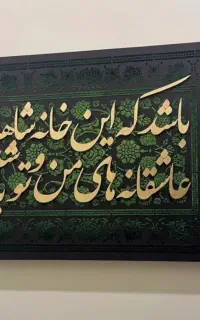 باشد که این خانه
عاشقانه های من و تو